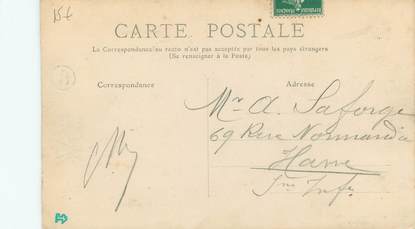 15 €
CARTE POSTALE
La Correspondance au recto n'est pas acceptée par tous les pays étrangers
(Se renseigner à la Poste)
Correspondance
Adresse
Mr A. Laforge
69 Rue Normandie
Havre
Sne Infre